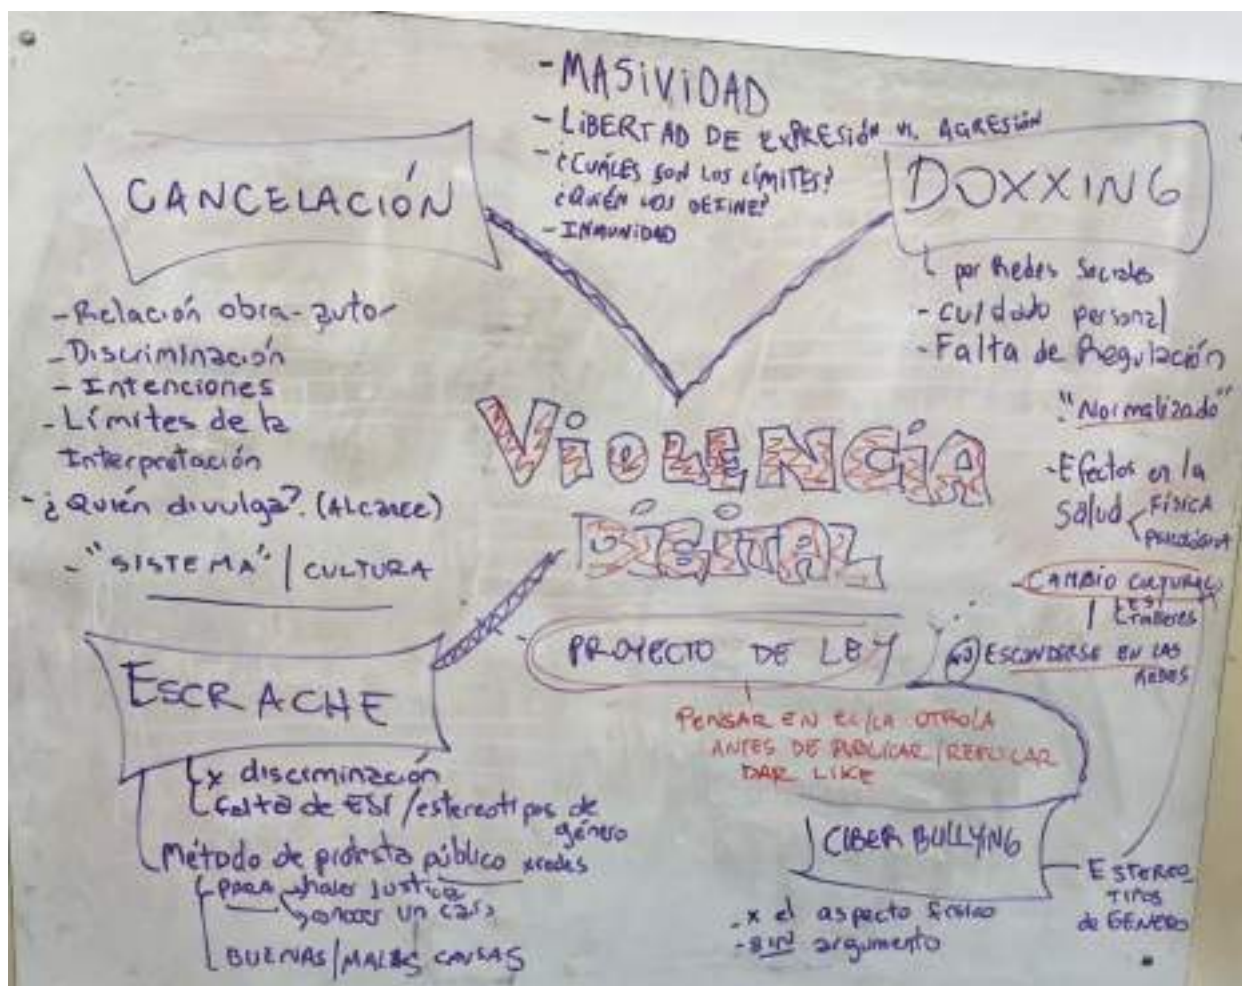 - MASIVIDAD
- LIBERTAD DE EXPRESIÓN vs. AGRESIÓN
- ¿CUÁLES SON LOS LÍMITES?
¿QUIÉN LOS DEFINE?
- INMUNIDAD
CANCELACIÓN
- Relación obra-autor
- Discriminación
- Intenciones
- Límites de la
Interpretación
- ¿Quién divulga? (Alcance)
- "SISTEMA" / CULTURA
DOXXING
por Redes Sociales
- cuidado personal
- Falta de Regulación
"Normalizado"
- Efectos en la
Salud FÍSICA
PSICOLÓGICA
- CAMBIO CULTURAL
ESI
talleres
ESCONDERSE EN LAS
REDES
VIOLENCIA
DIGITAL
PROYECTO DE LEY
PENSAR EN EL/LA OTRO/A
ANTES DE PUBLICAR/REPLICAR
DAR LIKE
ESCRACHE
x discriminación
falta de ESI/estereotipos de
género
Método de protesta público x redes
PARA hacer justicia
conocer un caso
BUENAS/MALAS CAUSAS
CIBER BULLYING
- x el aspecto físico
- SIN argumento
ESTEREO
TIPOS
de GÉNERO